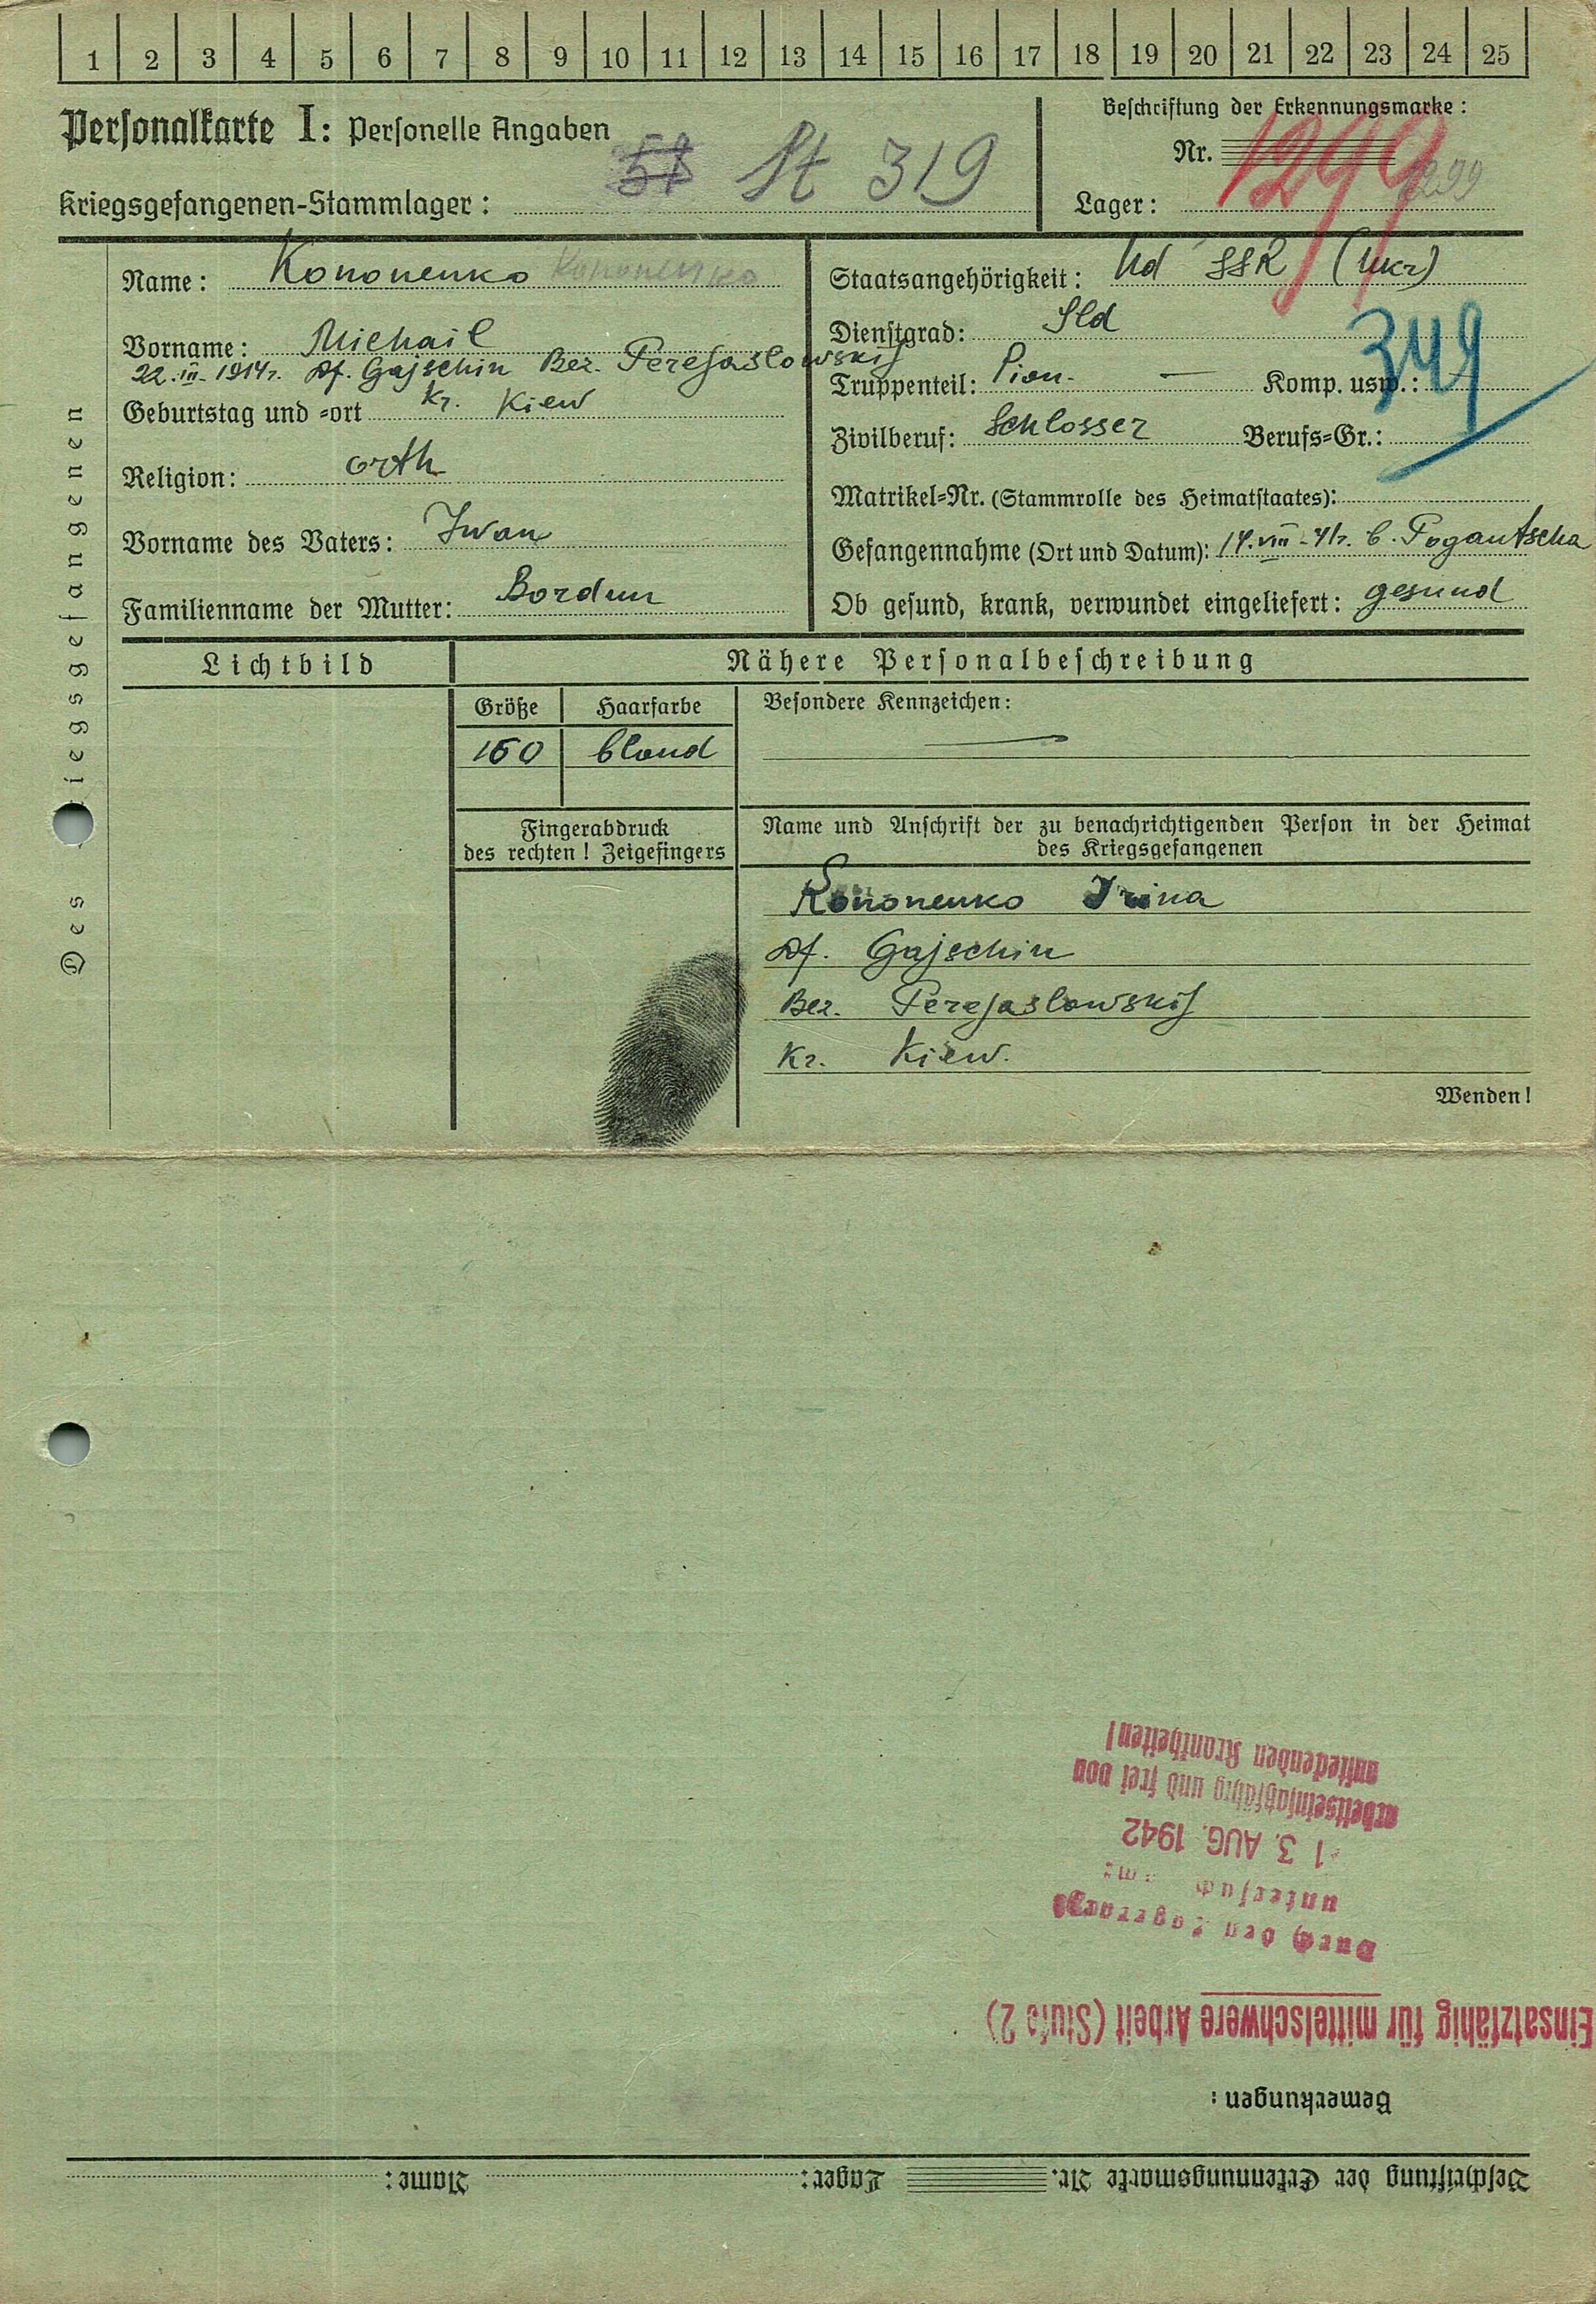 1 2 3 4 5 6 7 8 9 10 11 12 13 14 15 16 17 18 19 20 21 22 23 24 25
Personalkarte I: Personelle Angaben
Kriegsgefangenen-Stammlager: St 319
Beschriftung der Erkennungsmarke:
Nr. 1299 1299
Lager:
Des Kriegsgefangenen
Name: Kononenko Kononenko
Vorname: Michail
22.III.1914r. Df. Gajschin Bez. Perejaslowskij
Geburtstag und -ort Kr. Kiew
Religion: orth
Vorname des Vaters: Iwan
Familienname der Mutter: Bordun
Staatsangehörigkeit: Ud SSR (Ukr)
Dienstgrad: Sld
349
Truppenteil: Pion. — Komp. usw.:
Zivilberuf: Schlosser Berufs-Gr.:
Matrikel-Nr. (Stammrolle des Heimatstaates):
Gefangennahme (Ort und Datum): 14.VIII-41r. b. Pogantscha
Ob gesund, krank, verwundet eingeliefert: gesund
Lichtbild
Nähere Personalbeschreibung
Größe Haarfarbe
160 blond
Besondere Kennzeichen: —
Fingerabdruck
des rechten! Zeigefingers
Name und Anschrift der zu benachrichtigenden Person in der Heimat
des Kriegsgefangenen
Kononenko Irina
Df. Gajschin
Bez. Perejaslowskij
Kr. Kiew.
Wenden!
Beschriftung der Erkennungsmarke Nr. Lager: Name:
Bemerkungen:
Einsatzfähig für mittelschwere Arbeit (Stufe 2)
Durch den Lagerarzt
untersucht am:
13. AUG. 1942
arbeitseinsatzfähig und frei von
ansteckenden Krankheiten!